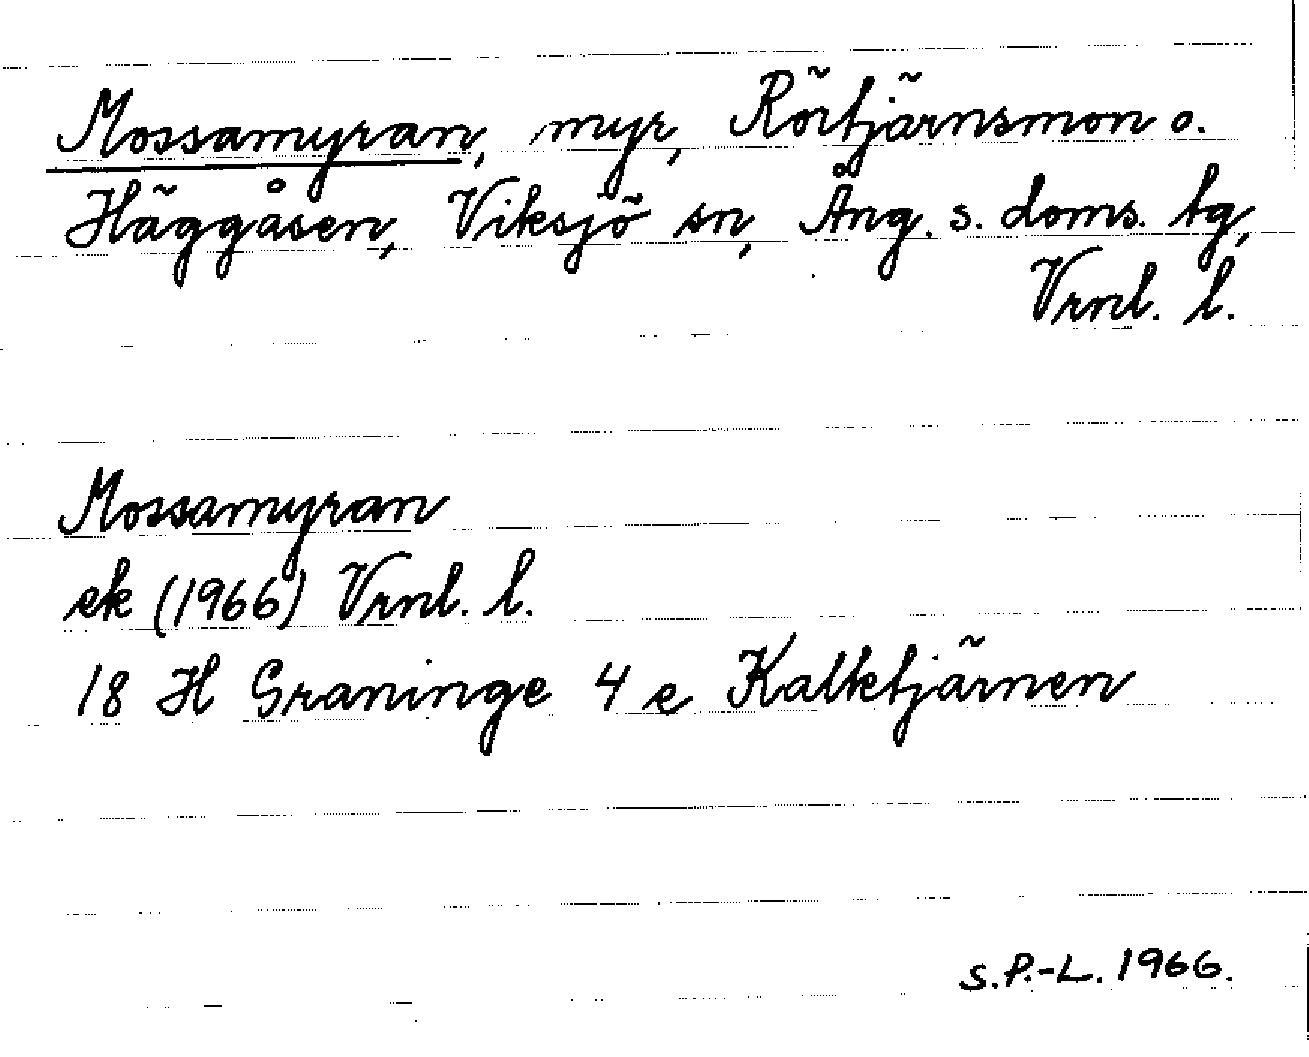 Mossamyran, myr, Rörtjärnsmon o.
Häggåsen, Viksjö sn, Ång. s. doms. tg,
Vrnl. l.
Mossamyran
ek (1966) Vrnl. l.
18 H Graninge 4 e Kalktjärnen
S.P.-L. 1966.